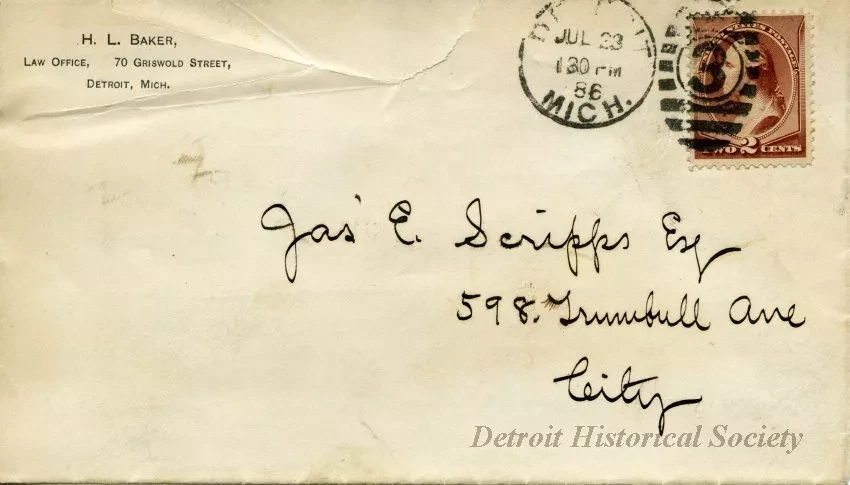 H. L. BAKER,
LAW OFFICE, 70 GRISWOLD STREET,
DETROIT, MICH.
DETROIT
JUL 23
130 PM
86
MICH.
3
UNITED STATES POSTAGE
TWO 2 CENTS
Jas' E. Scripps Esq
598. Trumbull Ave
City
Detroit Historical Society